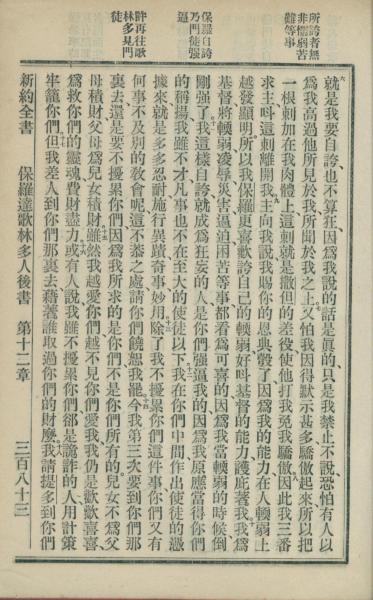 所誇者無
非懦弱苦
難等事
保羅自誇
乃門徒强
逼
許再往歌
林多見門
徒
六
就是我要自誇也不算狂因爲我說的話是眞的只是我禁止不說恐怕有人以
爲我高過他所見於我所聞於我之上又怕我因得默示甚多驕傲起來所以把
一根刺加在我肉體上這刺就是撒但的差役使他打我免我驕傲因此我三番
求主呌這刺離開我主向我說我賜你的恩典彀了因爲我的能力在人輭弱上
越發顯明所以我保羅更喜歡誇自己的輭弱好呌基督的能力護庇著我我爲
基督將輭弱凌辱災害逼迫困苦等事都看爲可喜的因爲我當輭弱的時候倒
剛强了我這樣自誇就成爲狂妄的人是你們强逼我的因爲我原應當得你們
的稱揚我雖不才凡事也不在至大的使徒以下我在你們中間作出使徒的憑
據來就是多多忍耐施行異蹟奇事妙用除了我不擾累你們這件事你們又有
何事不及別的敎會呢這不恭之處請你們饒恕我罷今我第三次要到你們那
裏去還是要不擾累你們因爲我所求的是你們不是你們所有的兒女不爲父
母積財父母爲兒女積財雖然我越愛你們越不見你們愛我我仍是歡歡喜喜
爲救你們的靈魂費財盡力或有人說我雖不擾累你們卻是詭詐的人用計策
牢籠你們但我差人到你們那裏去藉著誰取過你們的財麼我請提多到你們
新約全書 保羅達歌林多人後書 第十二章 三百八十三